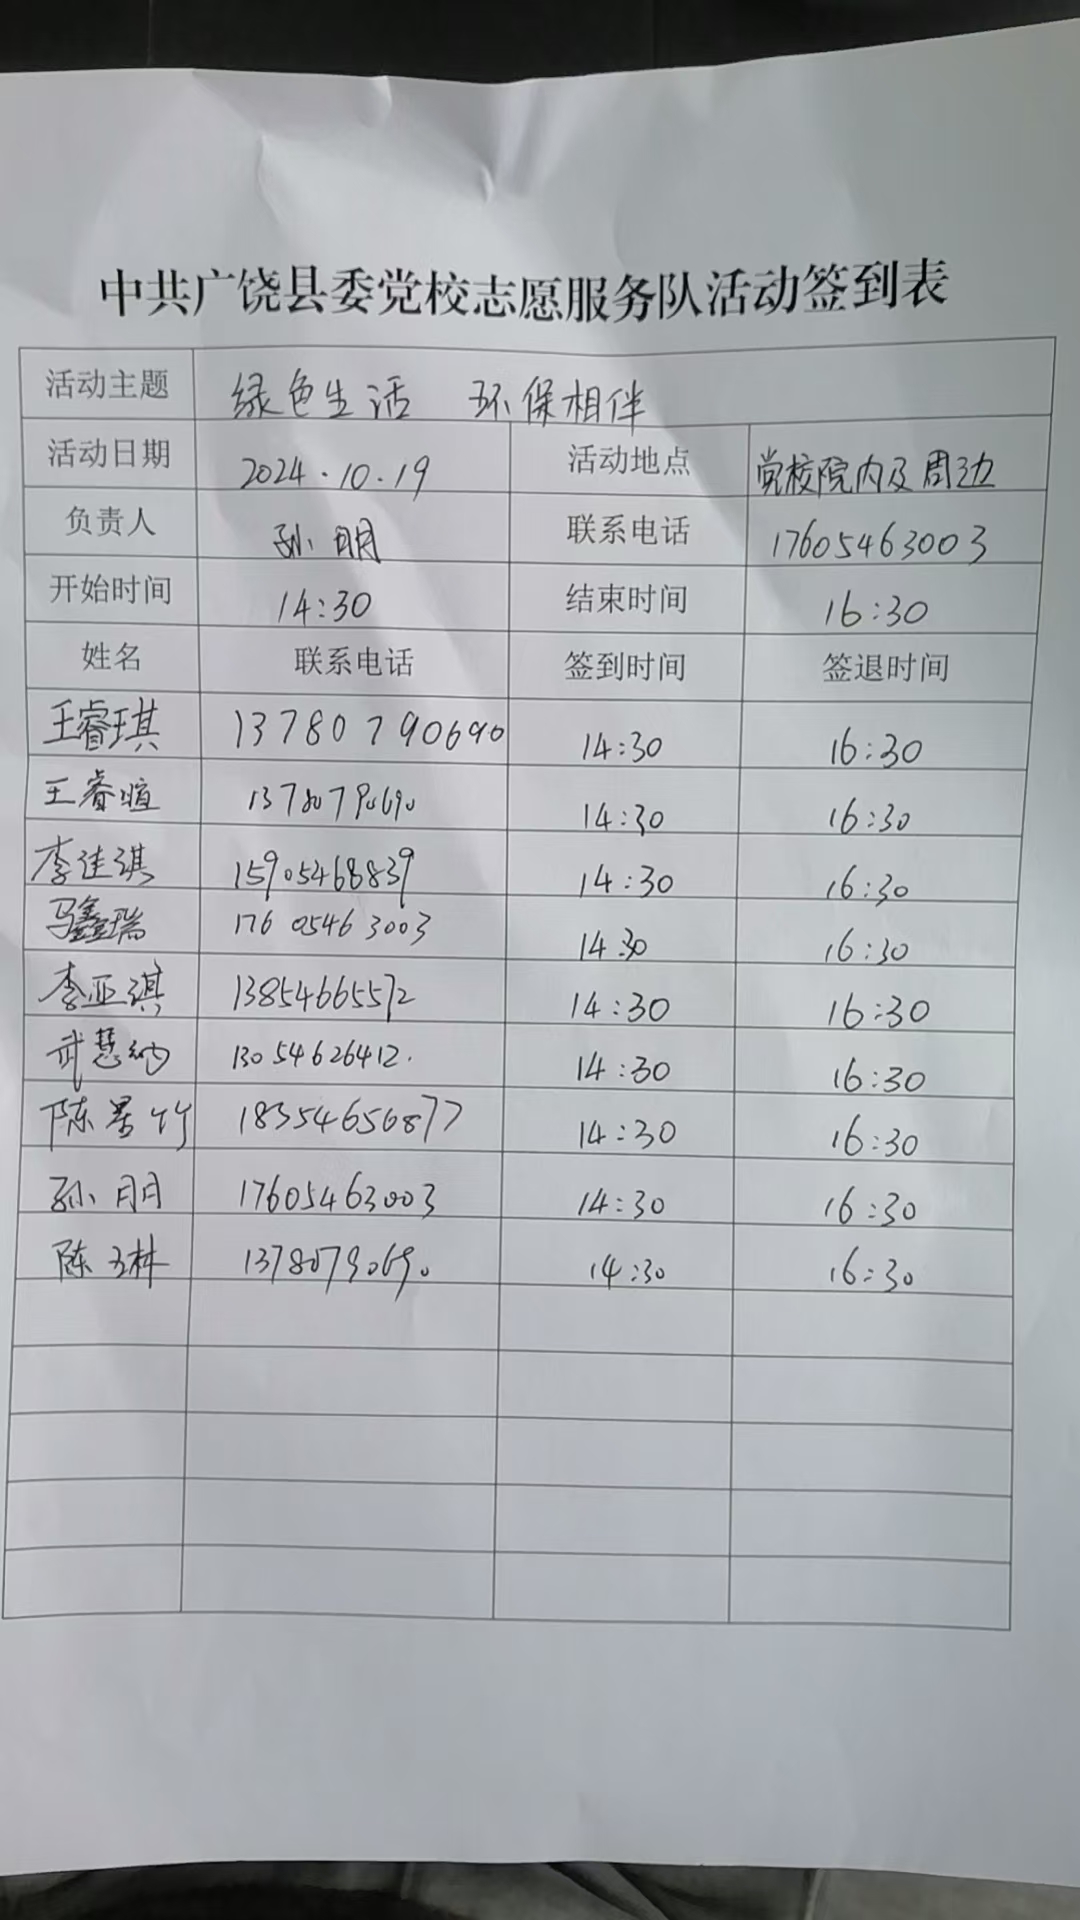 中共广饶县委党校志愿服务队活动签到表
活动主题 绿色生活 环保相伴
活动日期 2024.10.19 活动地点 党校院内及周边
负责人 孙朋 联系电话 17605463003
开始时间 14:30 结束时间 16:30
姓名 联系电话 签到时间 签退时间
王睿琪 13780790690 14:30 16:30
王睿暄 13780790690 14:30 16:30
李佳淇 15905468839 14:30 16:30
马鑫瑞 17605463003 14:30 16:30
李亚淇 13854665572 14:30 16:30
武慧 13054626412. 14:30 16:30
陈 竹 18354656877 14:30 16:30
孙朋 17605463003 14:30 16:30
陈玉林 13780790690 14:30 16:30